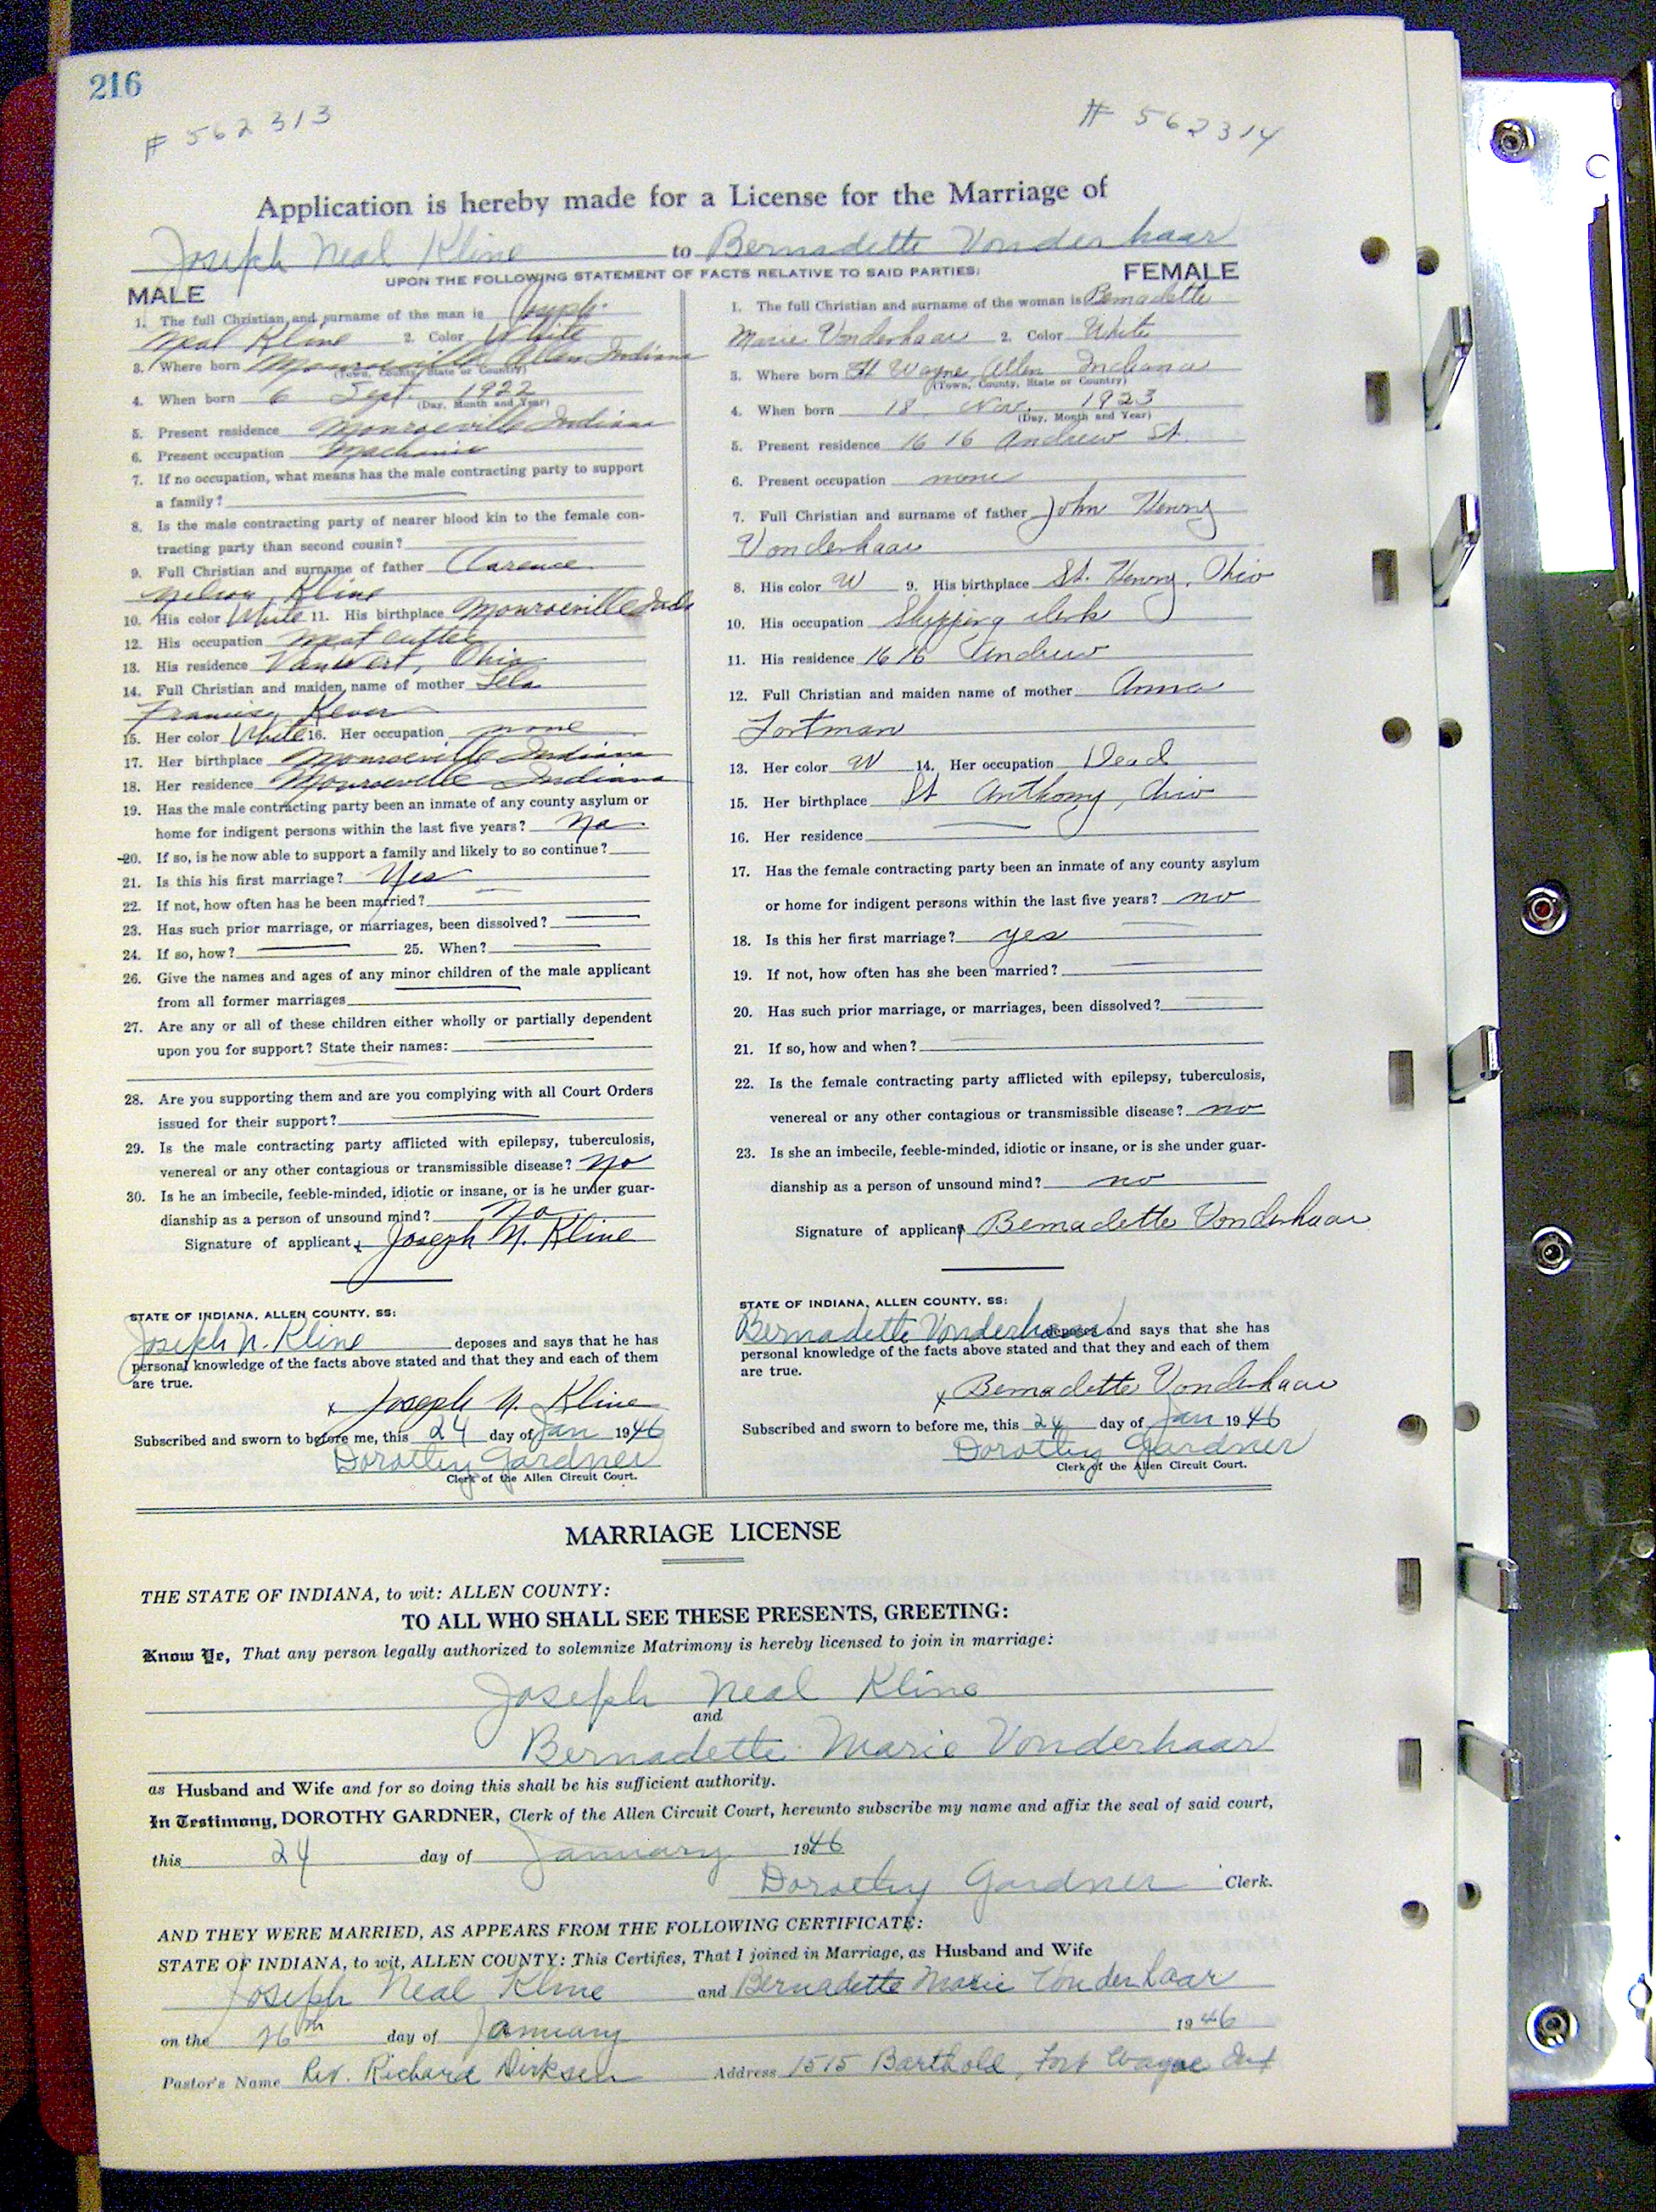 216
# 562313
# 562314
Application is hereby made for a License for the Marriage of
Joseph Neal Kline to Bernadette Vonderhaar
UPON THE FOLLOWING STATEMENT OF FACTS RELATIVE TO SAID PARTIES:
MALE
1. The full Christian and surname of the man is Joseph
Neal Kline 2. Color White
3. Where born Monroeville Allen Indiana
(Town, County, State or Country)
4. When born 6 Sept. 1922
(Day, Month and Year)
5. Present residence Monroeville Indiana
6. Present occupation Mechanic
7. If no occupation, what means has the male contracting party to support
a family?
8. Is the male contracting party of nearer blood kin to the female con-
tracting party than second cousin?
9. Full Christian and surname of father Clarence
Nelson Kline
10. His color White 11. His birthplace Monroeville Inda
12. His occupation Meat cutter
13. His residence VanWert, Ohio
14. Full Christian and maiden name of mother Lela
Francis
15. Her color White 16. Her occupation none
17. Her birthplace Monroeville Indiana
18. Her residence Monroeville Indiana
19. Has the male contracting party been an inmate of any county asylum or
home for indigent persons within the last five years? No
20. If so, is he now able to support a family and likely to so continue?
21. Is this his first marriage? Yes
22. If not, how often has he been married?
23. Has such prior marriage, or marriages, been dissolved?
24. If so, how? 25. When?
26. Give the names and ages of any minor children of the male applicant
from all former marriages
27. Are any or all of these children either wholly or partially dependent
upon you for support? State their names:
28. Are you supporting them and are you complying with all Court Orders
issued for their support?
29. Is the male contracting party afflicted with epilepsy, tuberculosis,
venereal or any other contagious or transmissible disease? No
30. Is he an imbecile, feeble-minded, idiotic or insane, or is he under guar-
dianship as a person of unsound mind? No
Signature of applicant x Joseph N. Kline
STATE OF INDIANA, ALLEN COUNTY, SS:
Joseph N. Kline deposes and says that he has
personal knowledge of the facts above stated and that they and each of them
are true.
x Joseph N. Kline
Subscribed and sworn to before me, this 24 day of Jan 1946
Dorothy Gardner
Clerk of the Allen Circuit Court.
FEMALE
1. The full Christian and surname of the woman is Bernadette
Marie Vonderhaar 2. Color White
3. Where born Ft Wayne Allen Indiana
(Town, County, State or Country)
4. When born 18 Nov. 1923
(Day, Month and Year)
5. Present residence 1616 Andrew St.
6. Present occupation none
7. Full Christian and surname of father John Henry
Vonderhaar
8. His color W 9. His birthplace St. Henry, Ohio
10. His occupation Shipping clerk
11. His residence 1616 Andrew
12. Full Christian and maiden name of mother Anna
Fortman
13. Her color W 14. Her occupation Dead
15. Her birthplace St Anthony, Ohio
16. Her residence
17. Has the female contracting party been an inmate of any county asylum
or home for indigent persons within the last five years? no
18. Is this her first marriage? yes
19. If not, how often has she been married?
20. Has such prior marriage, or marriages, been dissolved?
21. If so, how and when?
22. Is the female contracting party afflicted with epilepsy, tuberculosis,
venereal or any other contagious or transmissible disease? no
23. Is she an imbecile, feeble-minded, idiotic or insane, or is she under guar-
dianship as a person of unsound mind? no
Signature of applicant Bernadette Vonderhaar
STATE OF INDIANA, ALLEN COUNTY, SS:
Bernadette Vonderhaar deposes and says that she has
personal knowledge of the facts above stated and that they and each of them
are true.
x Bernadette Vonderhaar
Subscribed and sworn to before me, this 24 day of Jan 1946
Dorothy Gardner
Clerk of the Allen Circuit Court.
MARRIAGE LICENSE
THE STATE OF INDIANA, to wit: ALLEN COUNTY:
TO ALL WHO SHALL SEE THESE PRESENTS, GREETING:
Know Ye, That any person legally authorized to solemnize Matrimony is hereby licensed to join in marriage:
Joseph Neal Kline
and
Bernadette Marie Vonderhaar
as Husband and Wife and for so doing this shall be his sufficient authority.
In Testimony, DOROTHY GARDNER, Clerk of the Allen Circuit Court, hereunto subscribe my name and affix the seal of said court,
this 24 day of January 1946
Dorothy Gardner Clerk.
AND THEY WERE MARRIED, AS APPEARS FROM THE FOLLOWING CERTIFICATE:
STATE OF INDIANA, to wit, ALLEN COUNTY: This Certifies, That I joined in Marriage, as Husband and Wife
Joseph Neal Kline and Bernadette Marie Vonderhaar
on the 26th day of January 1946
Pastor's Name Rev. Richard Dirksen Address 1515 Barthold, Fort Wayne Ind